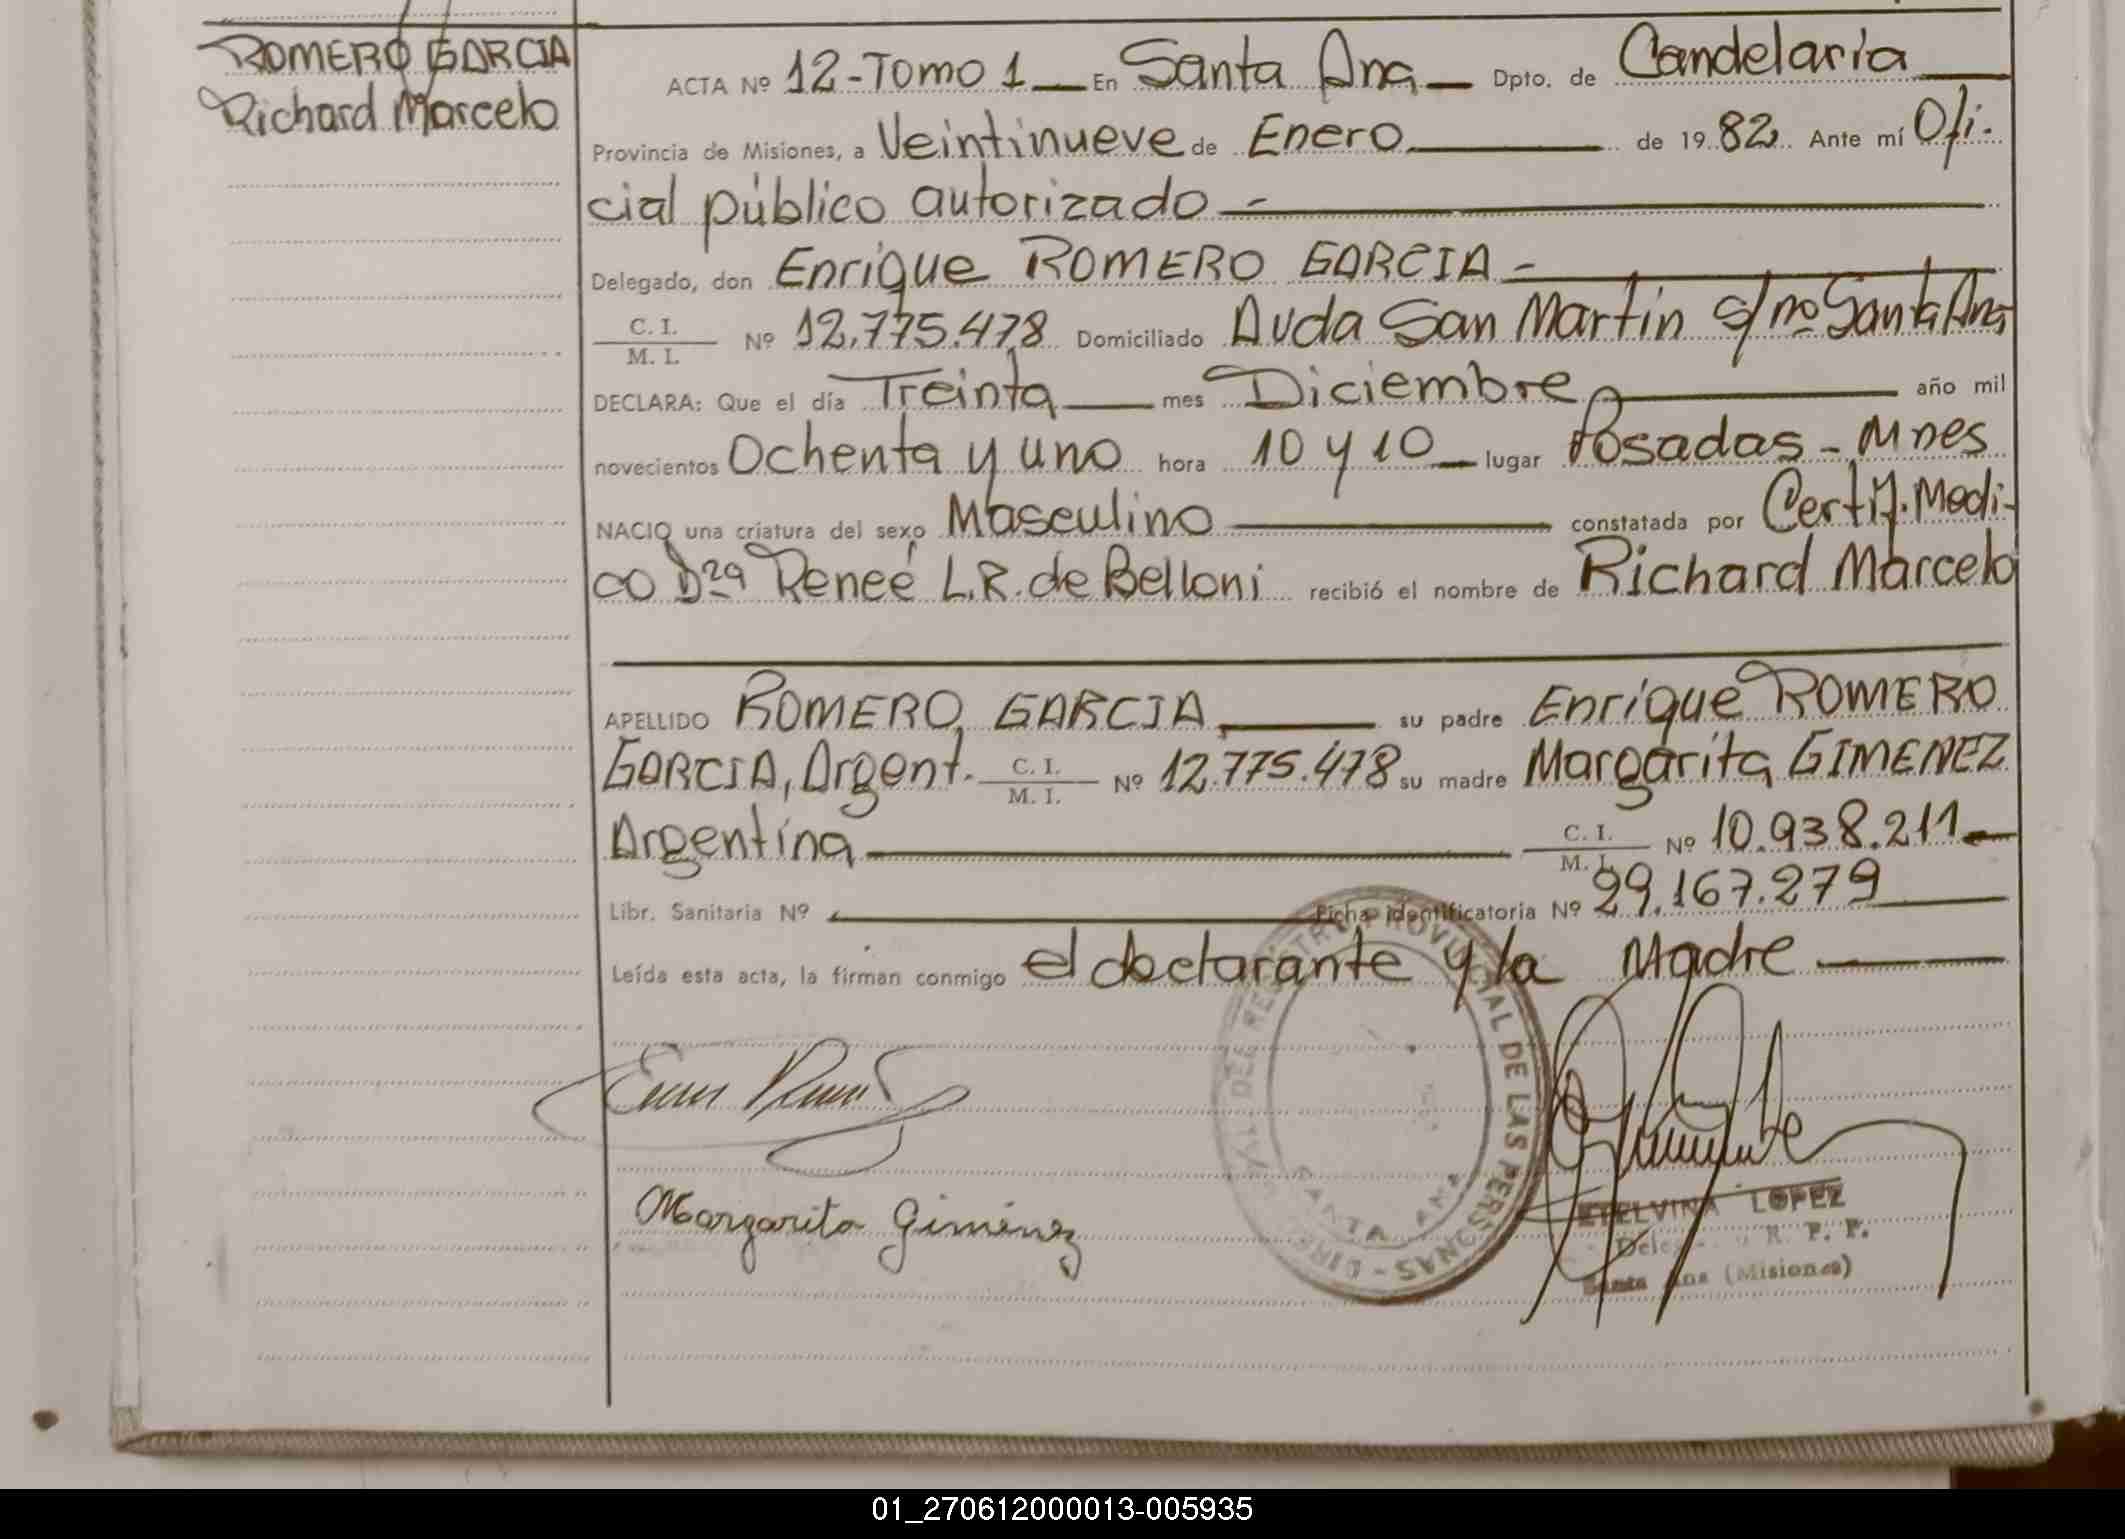 ROMERO GARCIA
Richard Marcelo
ACTA Nº 12-Tomo 1 En Santa Ana Dpto. de Candelaria
Provincia de Misiones, a Veintinueve de Enero de 1982 Ante mí Ofi-
cial público autorizado -
Delegado, don Enrique ROMERO GARCIA -
C. I.
M. I. Nº 12.775.478 Domiciliado Avda San Martin s/no Santa Ana
DECLARA: Que el día Treinta mes Diciembre año mil
novecientos Ochenta y uno hora 10 y 10 lugar Posadas - Mnes
NACIO una criatura del sexo Masculino constatada por Certif. Medi-
co Dra Reneé L.R. de Belloni recibió el nombre de Richard Marcelo
APELLIDO ROMERO GARCIA su padre Enrique ROMERO
GARCIA, Argent. C. I. M. I. Nº 12.775.478 su madre Margarita GIMENEZ
Argentina C. I. M. I. Nº 10.938.211
Libr. Sanitaria Nº Ficha identificatoria Nº 29.167.279
Leída esta acta, la firman conmigo el declarante y la Madre
Margarita Giménez
PROVINCIAL DE LAS PERSONAS
SANTA ANA
ETELVINA LOPEZ
R. P. P.
Santa Ana (Misiones)
01_270612000013-005935